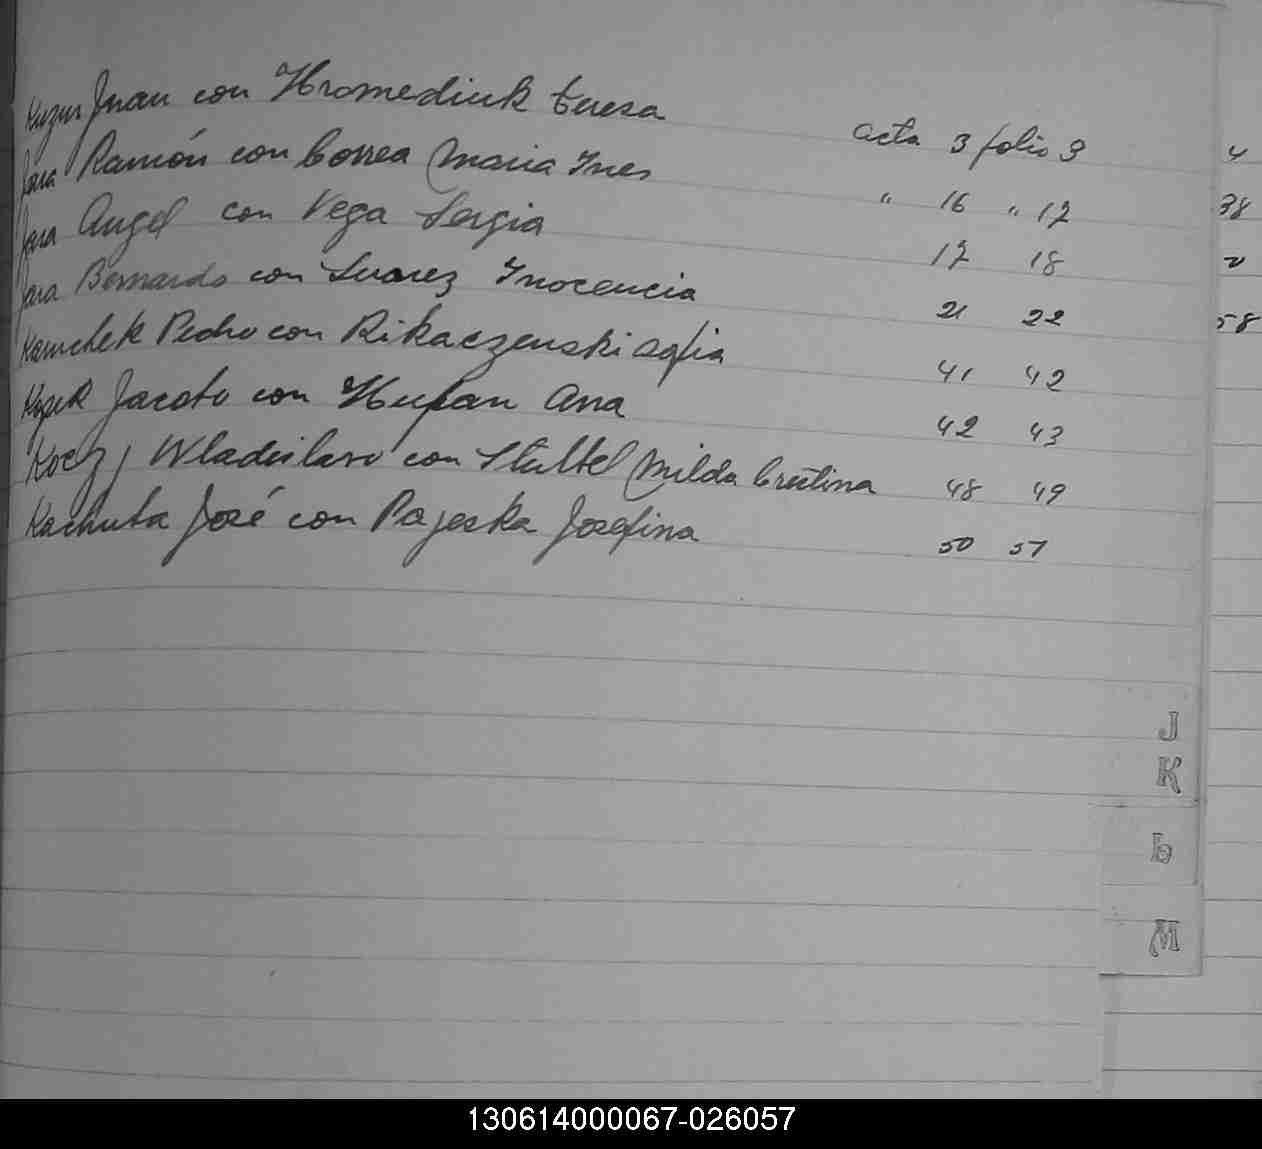 Kuzur Juan con Hromediuk teresa acta 3 folio 3 4
Jara Ramón con Correa Maria Ines " 16 " 17 38
Jara Angel con Vega Sergia 17 18
Jara Bernardo con Suarez Inocencia 21 22 58
Pedro con Rikaczenski 41 42
Jacobo con Hupan Ana 42 43
Koczj Wladislavo con Milda Cristina 48 49
Kachuba José con Pajeska Josefina 50 51
J
K
L
M
130614000067-026057